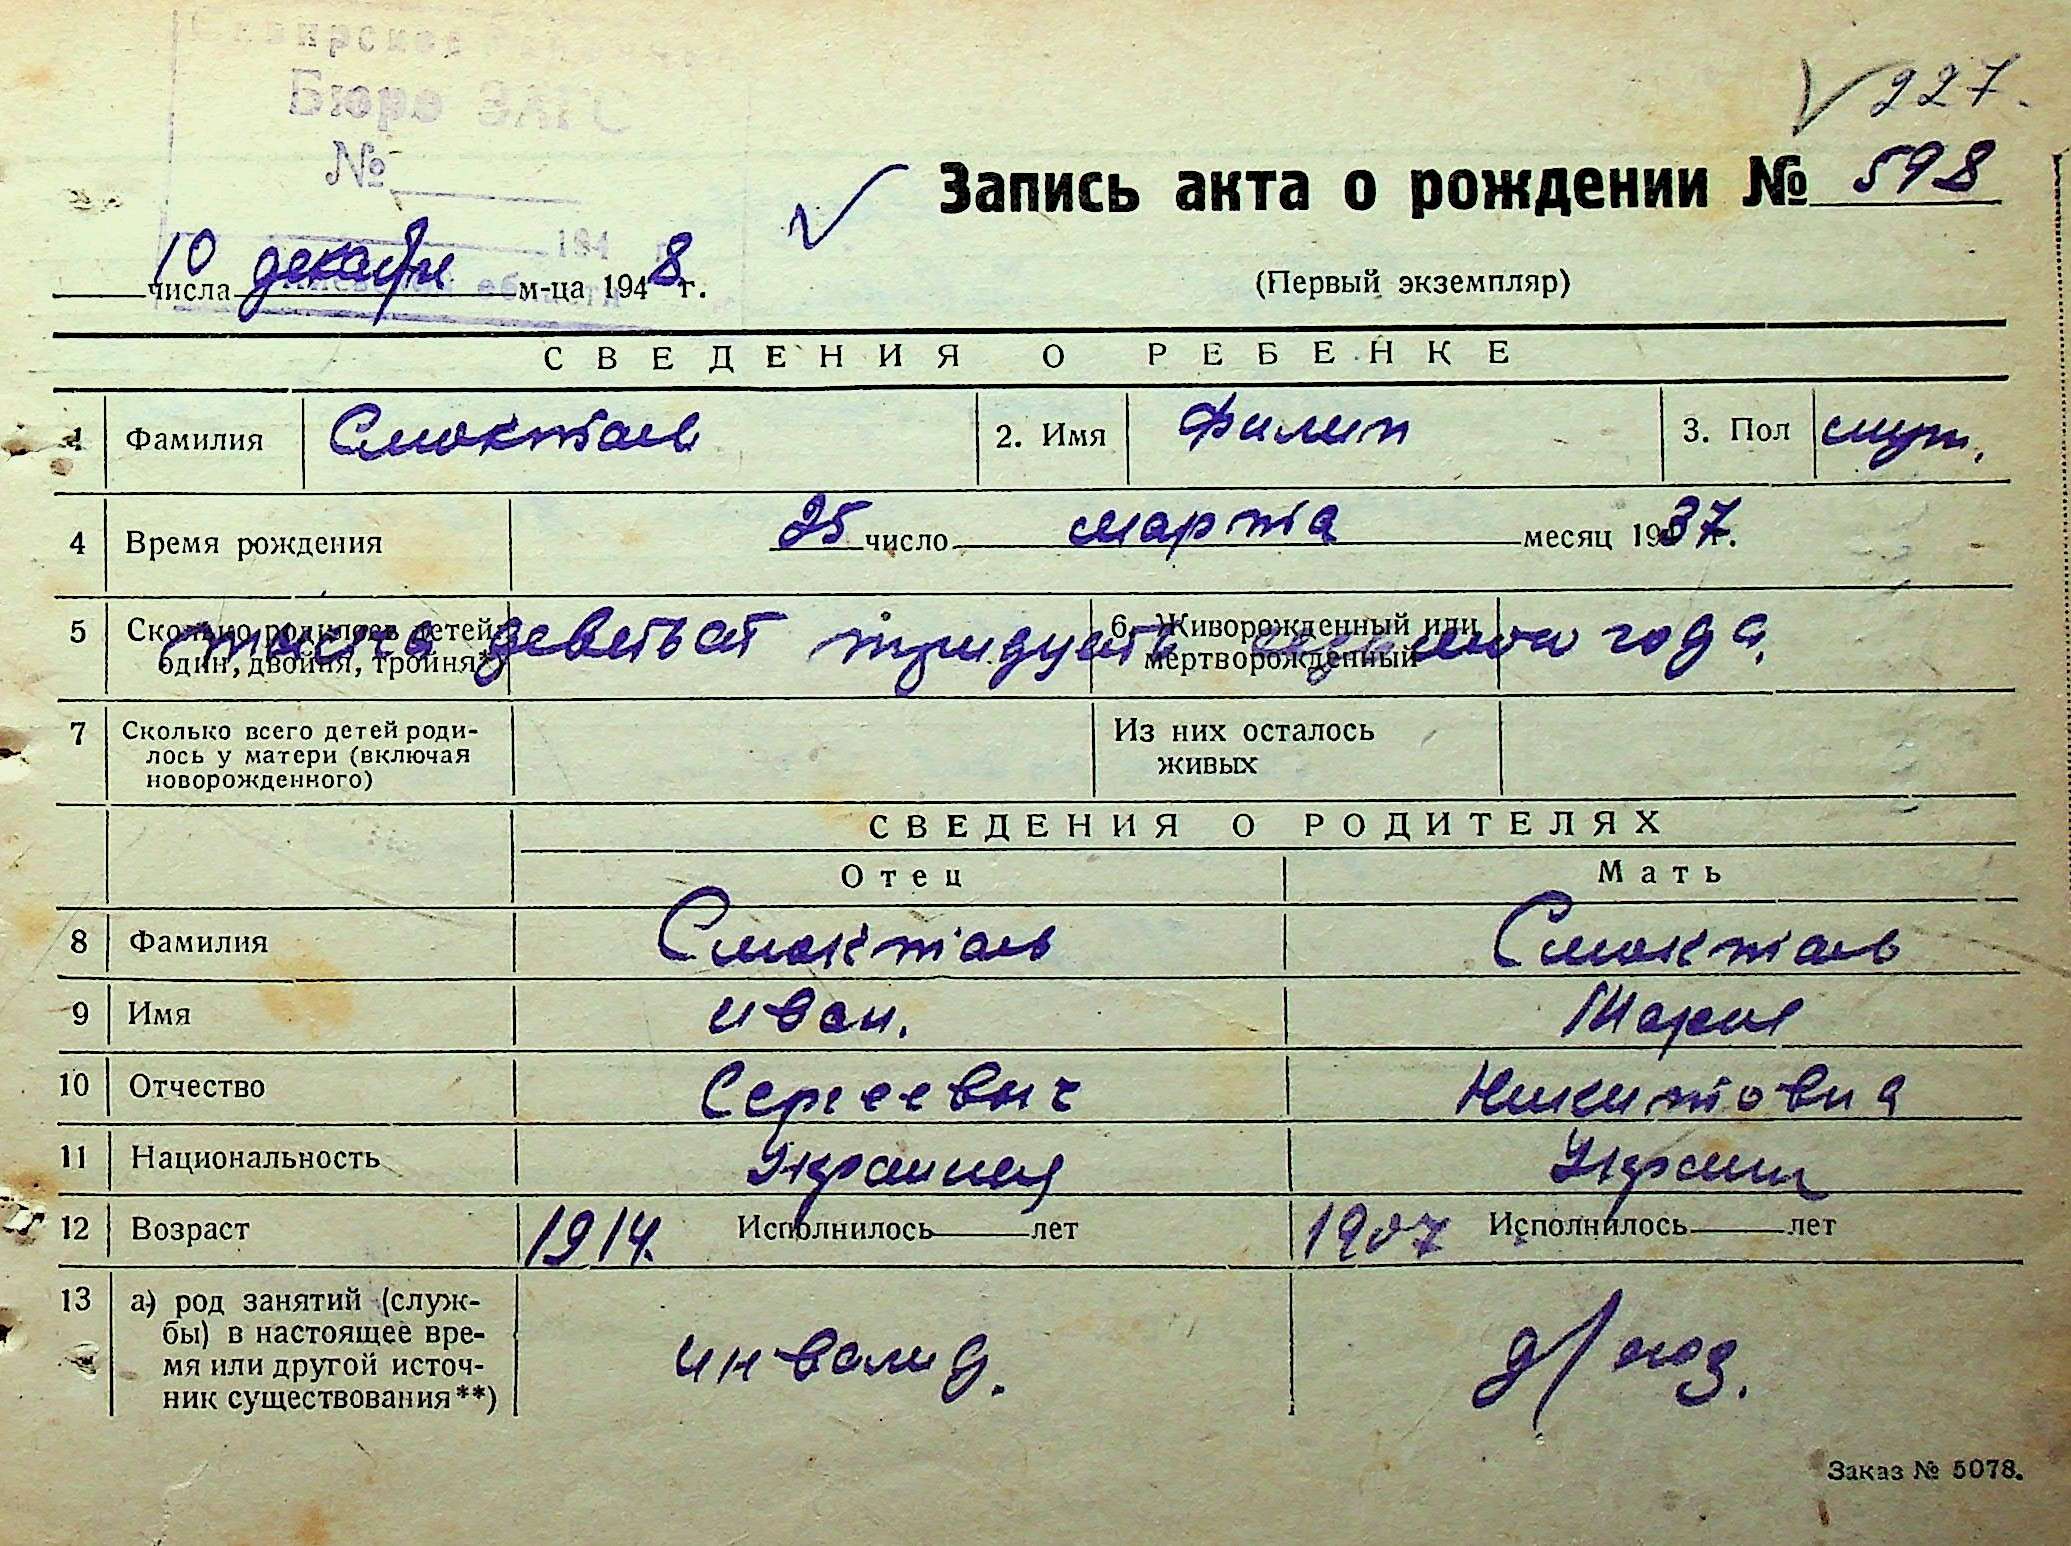 Бюро ЗАГС
№
227.
Запись акта о рождении № 598
194
10 числа декабря м-ца 1948 г.
(Первый экземпляр)
области
СВЕДЕНИЯ О РЕБЕНКЕ
1 Фамилия Смоктав 2. Имя Филип 3. Пол муж.
4 Время рождения 25 число марта месяц 1937 г.
5 Сколько родилось детей: один, двойня, тройня*) 6. Живорожденный или мертворожденный
тридцать седьмого года.
7 Сколько всего детей родилось у матери (включая новорожденного) Из них осталось живых
СВЕДЕНИЯ О РОДИТЕЛЯХ
Отец Мать
8 Фамилия Смоктав Смоктав
9 Имя Иван. Мария
10 Отчество Сергеевич Никитовна
11 Национальность
12 Возраст 1914. Исполнилось лет 1907 Исполнилось лет
13 а) род занятий (служ-
бы) в настоящее вре-
мя или другой источ-
ник существования**) инвалид. д/хоз.
Заказ № 5078.